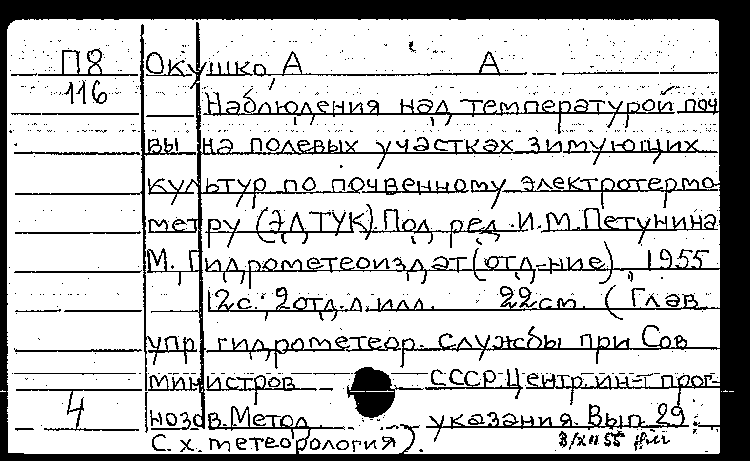 П8 Окушко, А А
116 Наблюдения над температурой поч
вы на полевых участках зимующих
культур по почвенному электротермо-
метру (ЭЛТУК). Под ред. И.М. Петунина
М., Гидрометеоиздат (отд-ние), 1955
12с.; 2 отд. л. илл. 22 см. (Глав.
упр. гидрометеор. службы при Сов
министров СССР. Центр. ин-т прог-
4 нозов. Метод. указания. Вып. 29:
С.х. метеорология).